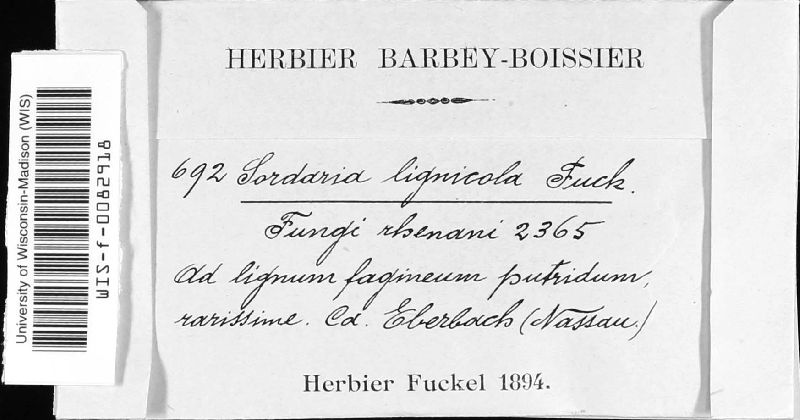 HERBIER BARBEY-BOISSIER
692 Sordaria lignicola Fuck.
Fungi rhenani 2365
Ad lignum fagineum putridum,
rarissime. Ca. Eberbach (Nassau.)
Herbier Fuckel 1894.
University of Wisconsin-Madison (WIS)
WIS-f-0082918